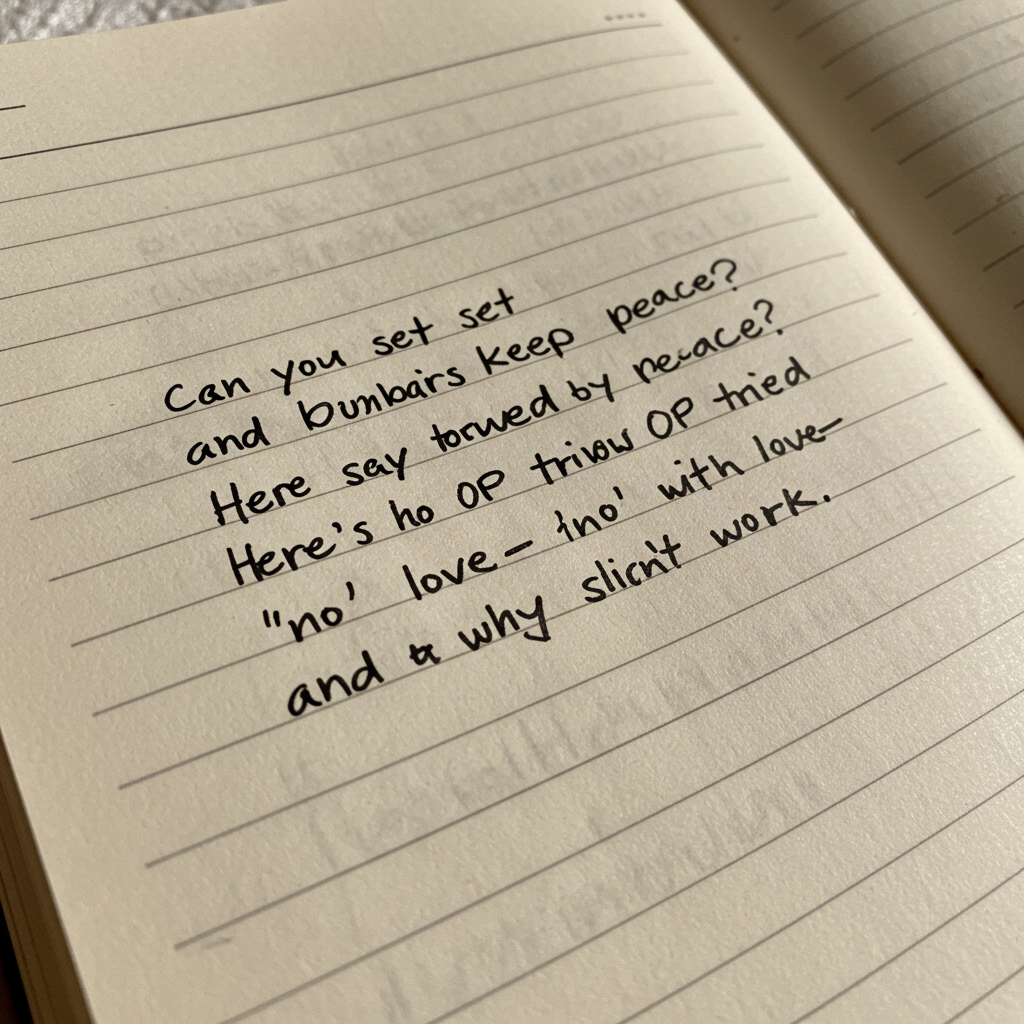 Can you set set
and bunbairs keep peace?
Here say torwed by peace?
Here's ho OP OP tried
"no' love— 'no' with love—
and why slicn't work.